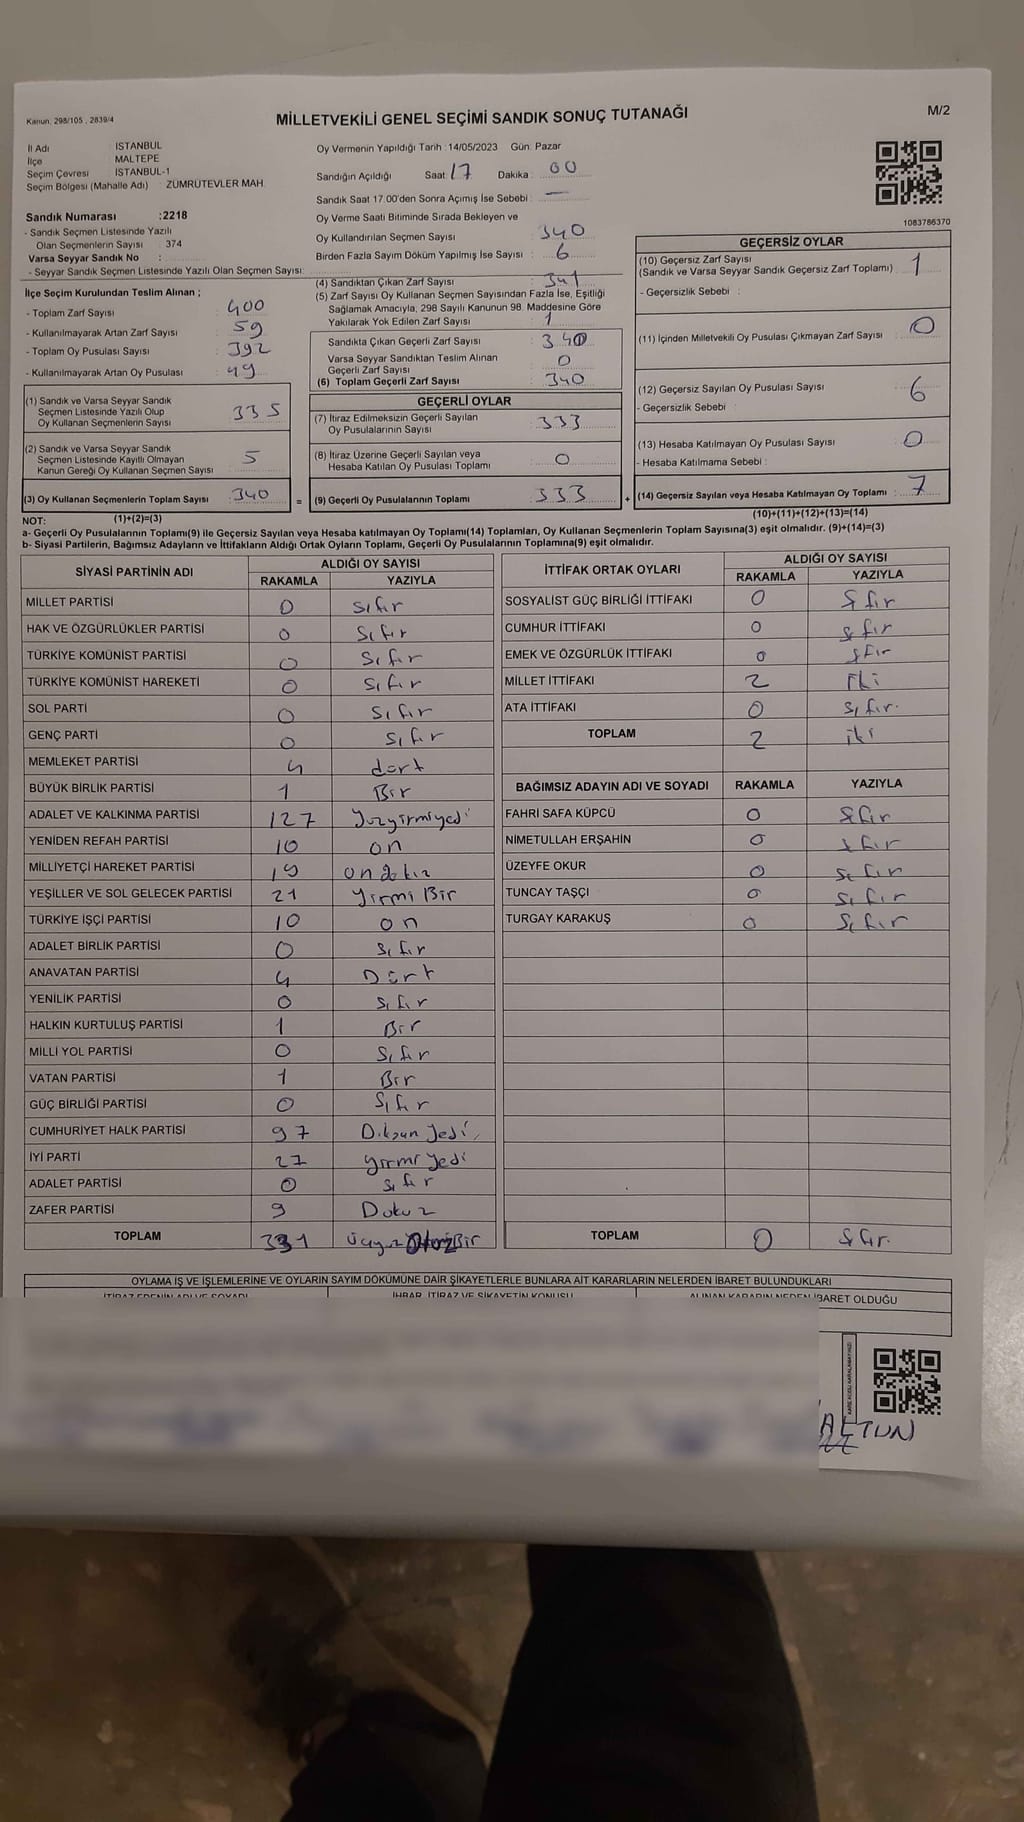 Kanun: 298/105 , 2839/4
MİLLETVEKİLİ GENEL SEÇİMİ SANDIK SONUÇ TUTANAĞI
M/2
İl Adı : İSTANBUL
İlçe : MALTEPE
Seçim Çevresi : İSTANBUL-1
Seçim Bölgesi (Mahalle Adı) : ZÜMRÜTEVLER MAH.
Sandık Numarası :2218
- Sandık Seçmen Listesinde Yazılı
Olan Seçmenlerin Sayısı : 374
Varsa Seyyar Sandık No :
- Seyyar Sandık Seçmen Listesinde Yazılı Olan Seçmen Sayısı:
Oy Vermenin Yapıldığı Tarih :14/05/2023 Gün: Pazar
Sandığın Açıldığı Saat: 17 Dakika : 00
Sandık Saat 17.00'den Sonra Açımış İse Sebebi : —
Oy Verme Saati Bitiminde Sırada Bekleyen ve
Oy Kullandırılan Seçmen Sayısı : 340
Birden Fazla Sayım Döküm Yapılmış İse Sayısı : 6
1083786370
İlçe Seçim Kurulundan Teslim Alınan ;
- Toplam Zarf Sayısı : 400
- Kullanılmayarak Artan Zarf Sayısı : 59
- Toplam Oy Pusulası Sayısı : 392
- Kullanılmayarak Artan Oy Pusulası : 49
(1) Sandık ve Varsa Seyyar Sandık
Seçmen Listesinde Yazılı Olup
Oy Kullanan Seçmenlerin Sayısı : 335
(2) Sandık ve Varsa Seyyar Sandık
Seçmen Listesinde Kayıtlı Olmayan
Kanun Gereği Oy Kullanan Seçmen Sayısı : 5
(3) Oy Kullanan Seçmenlerin Toplam Sayısı : 340
(4) Sandıktan Çıkan Zarf Sayısı : 341
(5) Zarf Sayısı Oy Kullanan Seçmen Sayısından Fazla İse, Eşitliği
Sağlamak Amacıyla, 298 Sayılı Kanunun 98. Maddesine Göre
Yakılarak Yok Edilen Zarf Sayısı : 1
Sandıkta Çıkan Geçerli Zarf Sayısı : 340
Varsa Seyyar Sandıktan Teslim Alınan
Geçerli Zarf Sayısı : 0
(6) Toplam Geçerli Zarf Sayısı : 340
GEÇERLİ OYLAR
(7) İtiraz Edilmeksizin Geçerli Sayılan
Oy Pusulalarının Sayısı : 333
(8) İtiraz Üzerine Geçerli Sayılan veya
Hesaba Katılan Oy Pusulası Toplamı : 0
= (9) Geçerli Oy Pusulalarının Toplamı : 333
GEÇERSİZ OYLAR
(10) Geçersiz Zarf Sayısı : 1
(Sandık ve Varsa Seyyar Sandık Geçersiz Zarf Toplamı)
- Geçersizlik Sebebi :
(11) İçinden Milletvekili Oy Pusulası Çıkmayan Zarf Sayısı : 0
(12) Geçersiz Sayılan Oy Pusulası Sayısı : 6
- Geçersizlik Sebebi :
(13) Hesaba Katılmayan Oy Pusulası Sayısı : 0
- Hesaba Katılmama Sebebi :
+ (14) Geçersiz Sayılan veya Hesaba Katılmayan Oy Toplamı : 7
NOT: (1)+(2)=(3) (10)+(11)+(12)+(13)=(14)
a- Geçerli Oy Pusulalarının Toplamı(9) ile Geçersiz Sayılan veya Hesaba katılmayan Oy Toplamı(14) Toplamları, Oy Kullanan Seçmenlerin Toplam Sayısına(3) eşit olmalıdır. (9)+(14)=(3)
b- Siyasi Partilerin, Bağımsız Adayların ve İttifakların Aldığı Ortak Oyların Toplamı, Geçerli Oy Pusulalarının Toplamına(9) eşit olmalıdır.
SİYASİ PARTİNİN ADI ALDIĞI OY SAYISI
RAKAMLA YAZIYLA
MİLLET PARTİSİ 0 Sıfır
HAK VE ÖZGÜRLÜKLER PARTİSİ 0 Sıfır
TÜRKİYE KOMÜNİST PARTİSİ 0 Sıfır
TÜRKİYE KOMÜNİST HAREKETİ 0 Sıfır
SOL PARTİ 0 Sıfır
GENÇ PARTİ 0 Sıfır
MEMLEKET PARTİSİ 4 dört
BÜYÜK BİRLİK PARTİSİ 1 Bir
ADALET VE KALKINMA PARTİSİ 127 Yüzyirmiyedi
YENİDEN REFAH PARTİSİ 10 on
MİLLİYETÇİ HAREKET PARTİSİ 19 ondokuz
YEŞİLLER VE SOL GELECEK PARTİSİ 21 Yirmi Bir
TÜRKİYE İŞÇİ PARTİSİ 10 on
ADALET BİRLİK PARTİSİ 0 Sıfır
ANAVATAN PARTİSİ 4 Dört
YENİLİK PARTİSİ 0 Sıfır
HALKIN KURTULUŞ PARTİSİ 1 Bir
MİLLİ YOL PARTİSİ 0 Sıfır
VATAN PARTİSİ 1 Bir
GÜÇ BİRLİĞİ PARTİSİ 0 Sıfır
CUMHURİYET HALK PARTİSİ 97 Doksan Yedi
İYİ PARTİ 27 Yirmi Yedi
ADALET PARTİSİ 0 Sıfır
ZAFER PARTİSİ 9 Dokuz
TOPLAM 331 Üçyüz OtuzBir
İTTİFAK ORTAK OYLARI ALDIĞI OY SAYISI
RAKAMLA YAZIYLA
SOSYALİST GÜÇ BİRLİĞİ İTTİFAKI 0 Sıfır
CUMHUR İTTİFAKI 0 Sıfır
EMEK VE ÖZGÜRLÜK İTTİFAKI 0 Sıfır
MİLLET İTTİFAKI 2 İki
ATA İTTİFAKI 0 Sıfır.
TOPLAM 2 iki
BAĞIMSIZ ADAYIN ADI VE SOYADI RAKAMLA YAZIYLA
FAHRİ SAFA KÜPCÜ 0 Sıfır
NİMETULLAH ERŞAHİN 0 Sıfır
ÜZEYFE OKUR 0 Sıfır
TUNCAY TAŞÇI 0 Sıfır
TURGAY KARAKUŞ 0 Sıfır
TOPLAM 0 Sıfır.
OYLAMA İŞ VE İŞLEMLERİNE VE OYLARIN SAYIM DÖKÜMÜNE DAİR ŞİKAYETLERLE BUNLARA AİT KARARLARIN NELERDEN İBARET BULUNDUKLARI
İTİRAZ EDENİN ADI VE SOYADI İHBAR, İTİRAZ VE ŞİKAYETİN KONUSU ALINAN KARARIN NEDEN İBARET OLDUĞU
ALTUN